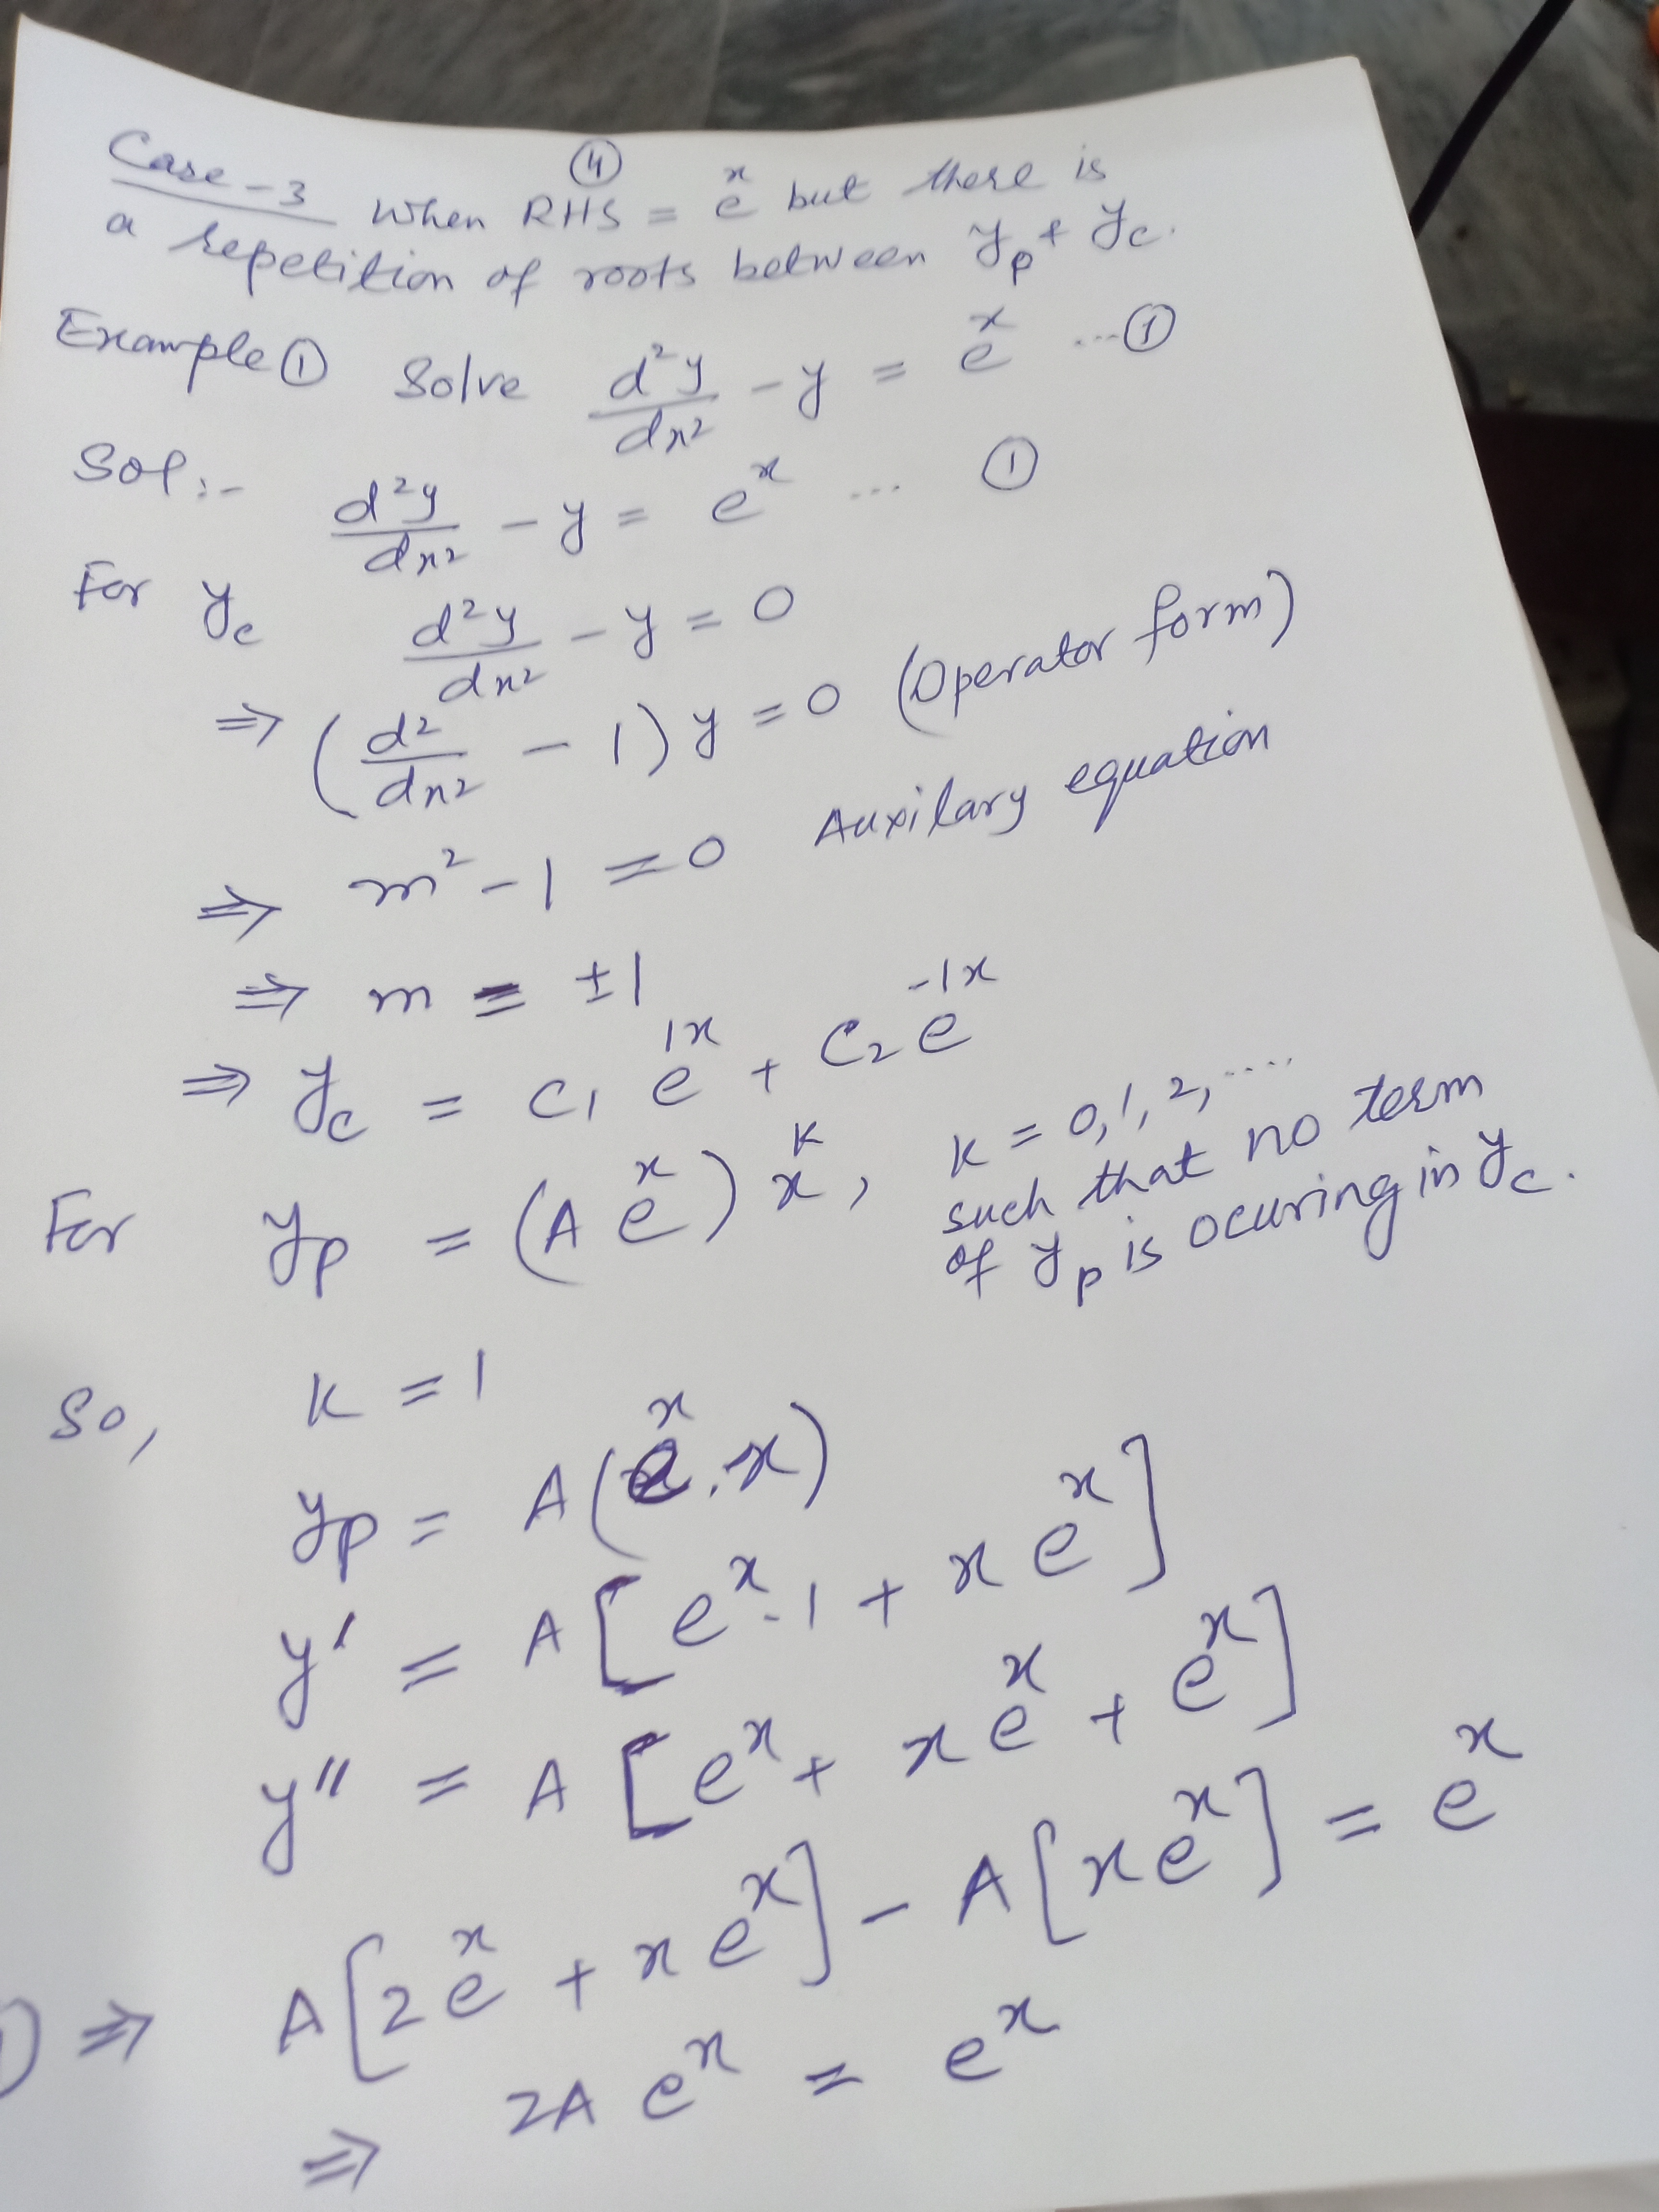 ④
Case-3 When RHS = eˣ but there is
a repetition of roots between y_p & y_c.
Example ① Solve d²y/dx² - y = eˣ ...①
Sol:- d²y/dx² - y = eˣ ... ①
For y_c d²y/dx² - y = 0
⇒ (d²/dx² - 1) y = 0 (Operator form)
⇒ m² - 1 = 0 Auxilary equation
⇒ m = ±1
⇒ y_c = c₁ e^{1x} + c₂ e^{-1x}
For y_p = (A eˣ) x^k, k = 0, 1, 2, ....
such that no term
of y_p is ocuring in y_c.
So, k = 1
y_p = A(eˣ.x)
y' = A[eˣ.1 + x eˣ]
y'' = A[eˣ + x eˣ + eˣ]
① ⇒ A[2eˣ + x eˣ] - A[x eˣ] = eˣ
⇒ 2A eˣ = eˣ